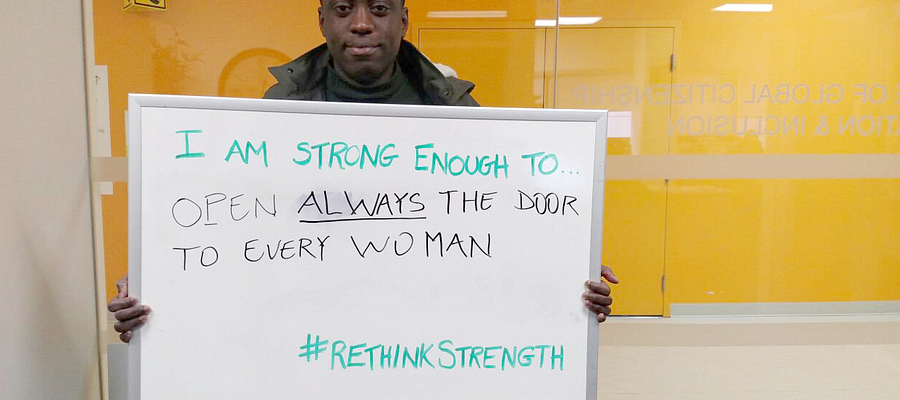 I AM STRONG ENOUGH TO...
OPEN ALWAYS THE DOOR
TO EVERY WOMAN
#RETHINKSTRENGTH
OF GLOBAL CITIZENSHIP
& INCLUSION